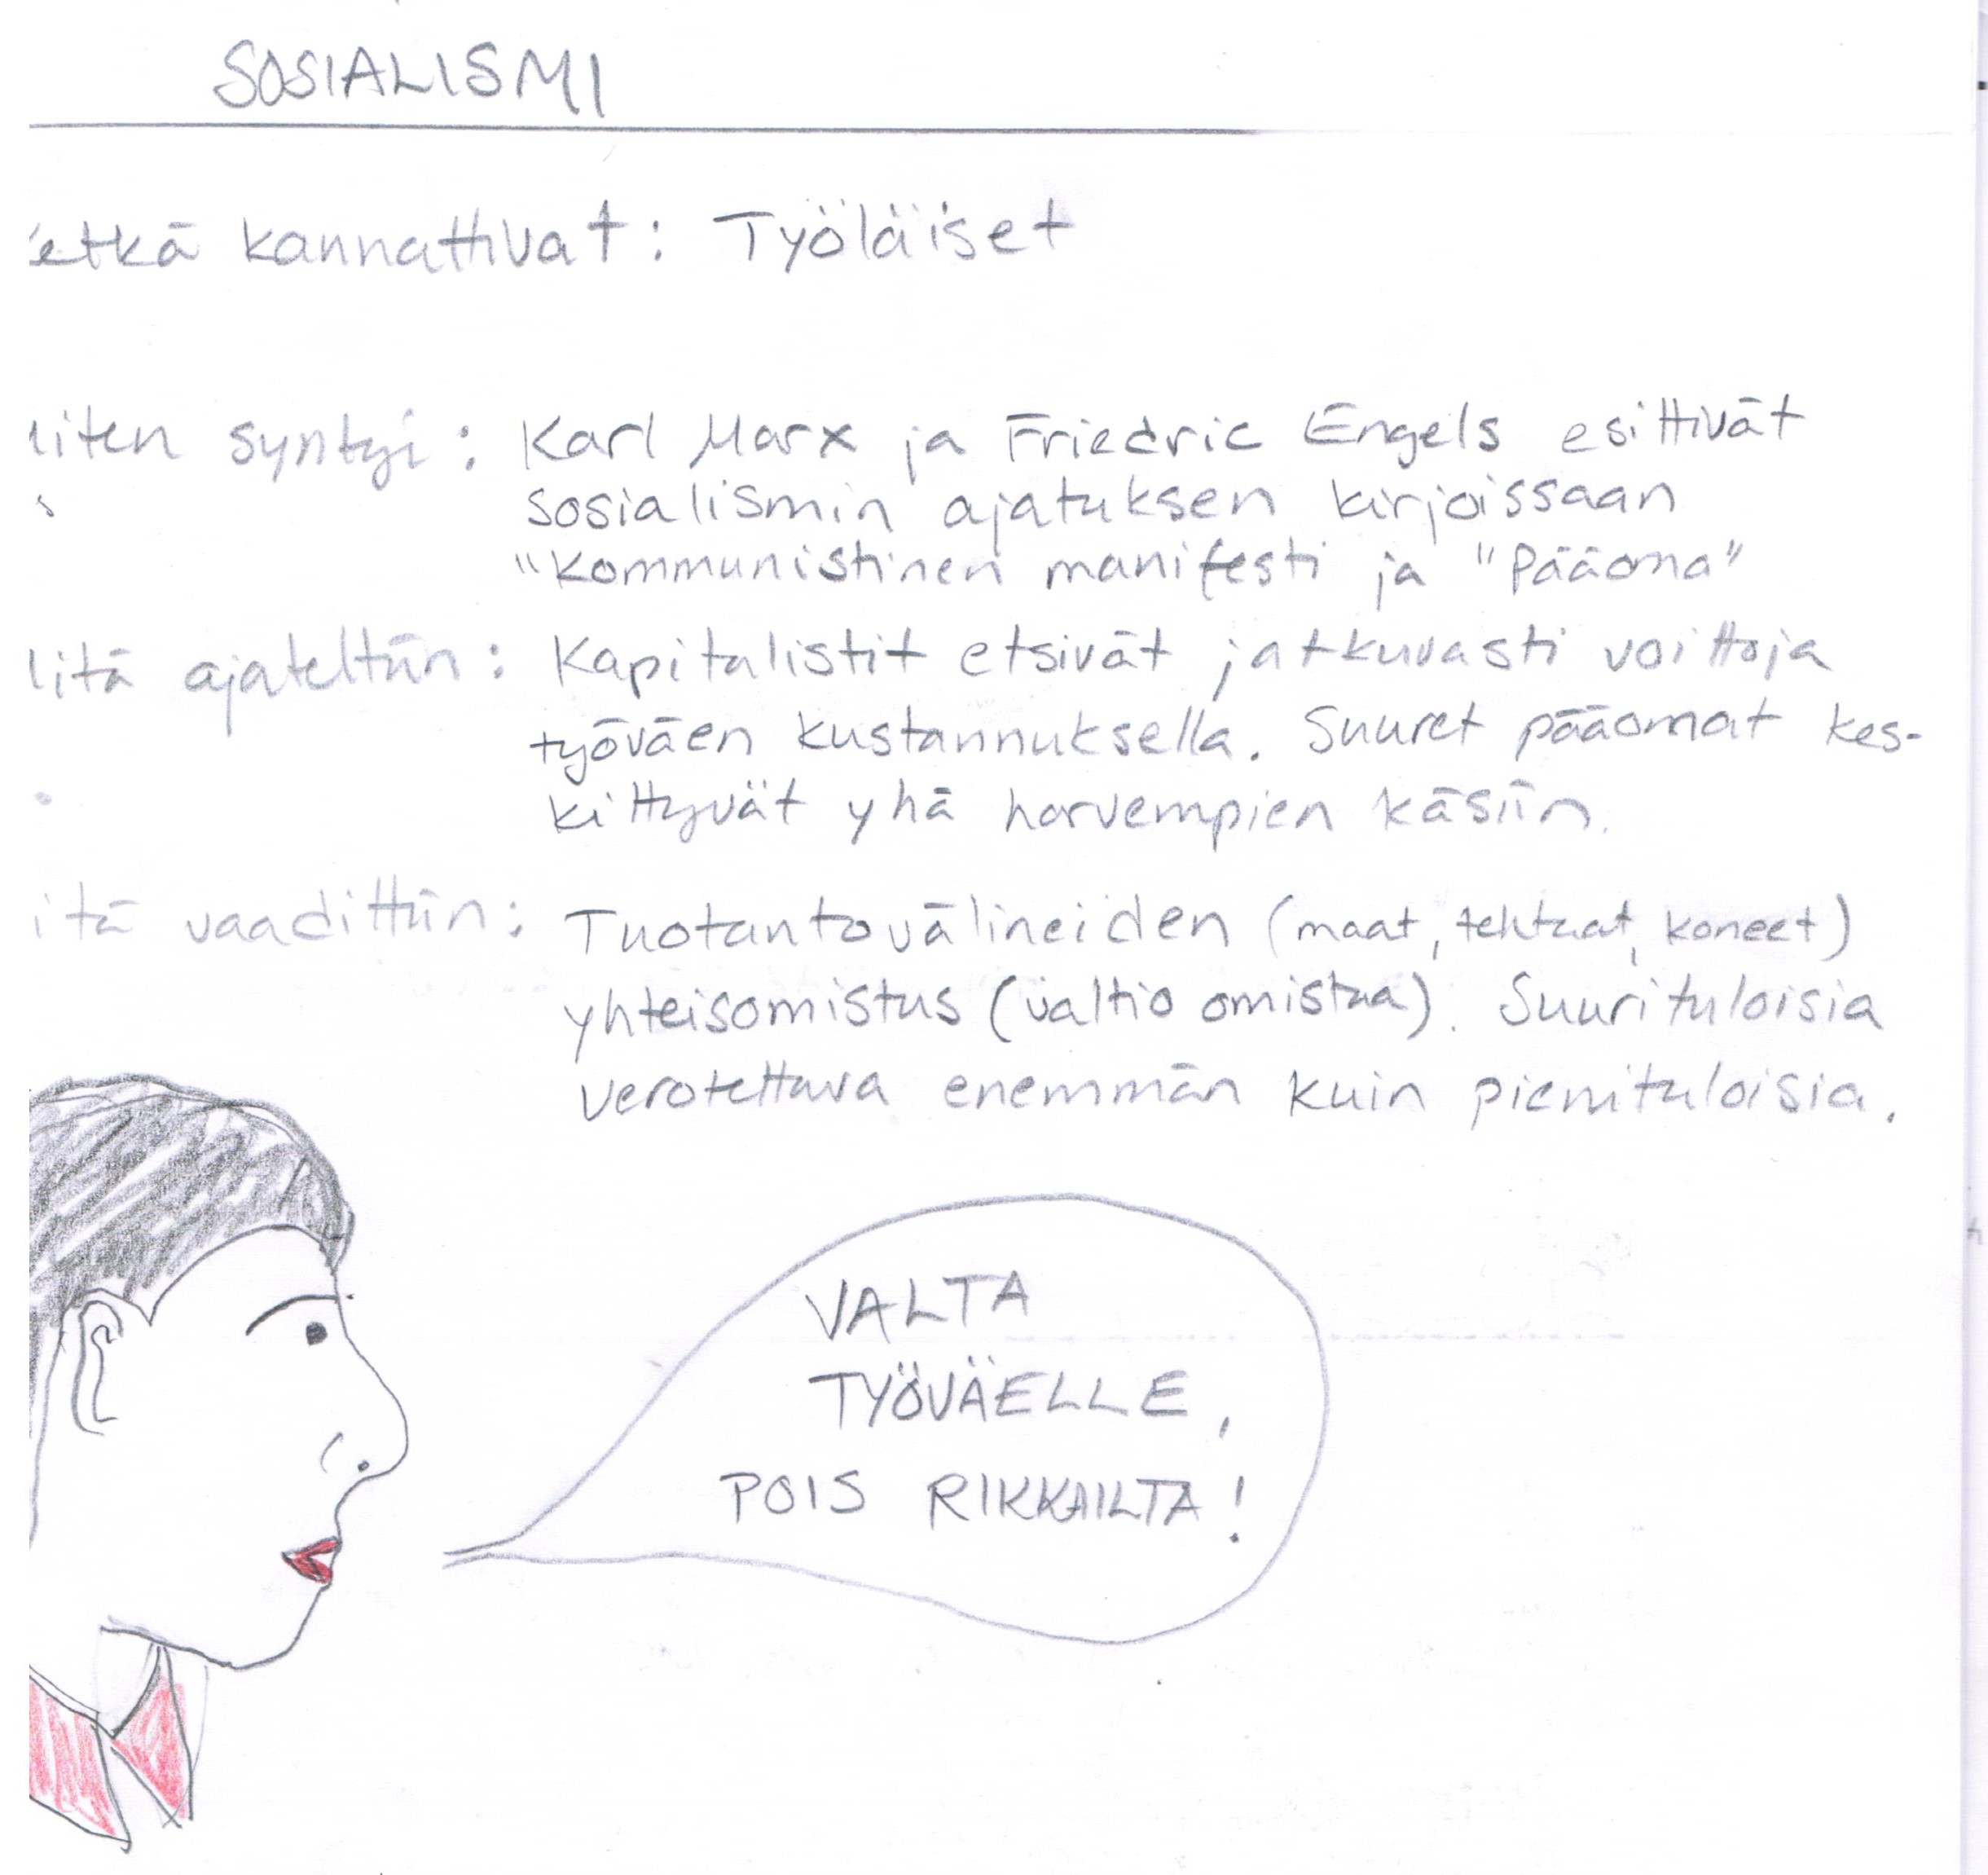 SOSIALISMI
etkä kannattivat: Työläiset
iten syntyi: Karl Marx ja Friedric Engels esittivät
sosialismin ajatuksen kirjoissaan
"Kommunistinen manifesti ja "Pääoma"
itä ajateltiin: Kapitalistit etsivät jatkuvasti voittoja
työväen kustannuksella. Suuret pääomat kes-
kittyvät yhä harvempien käsiin.
itä vaadittiin: Tuotantovälineiden (maat, tehtaat, koneet)
yhteisomistus (valtio omistaa). Suurituloisia
verotettava enemmän kuin pienituloisia.
VALTA
TYÖVÄELLE,
POIS RIKKAILTA!